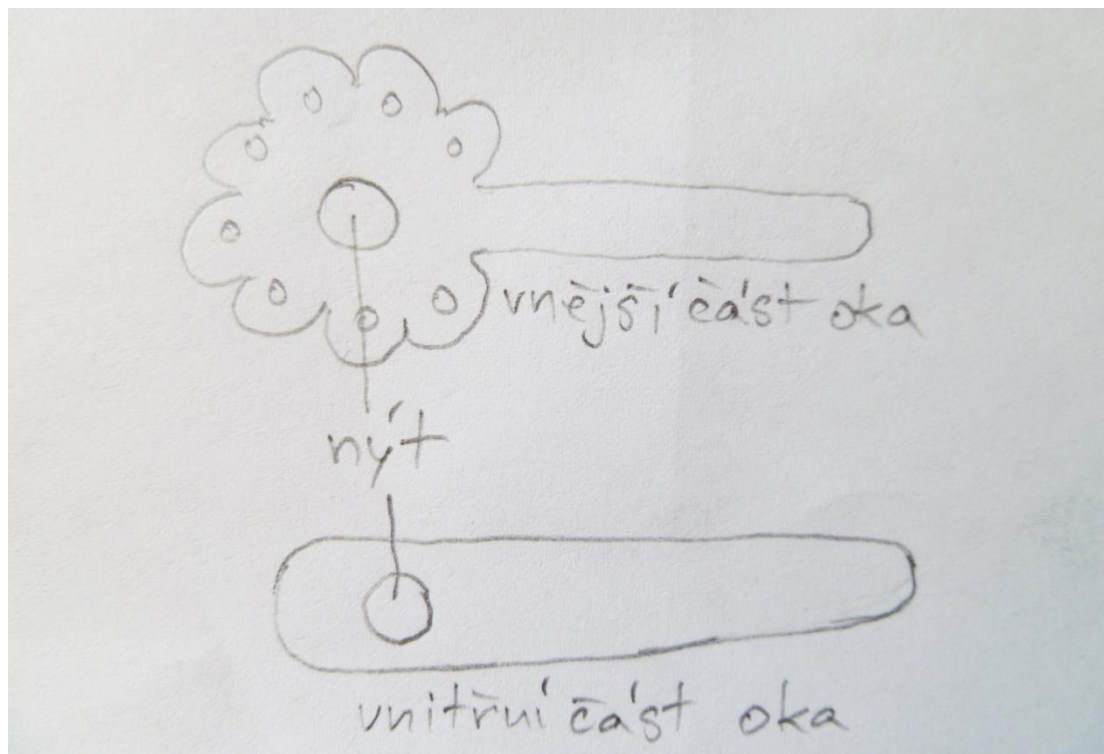 vnější část oka
nýt
vnitřní část oka